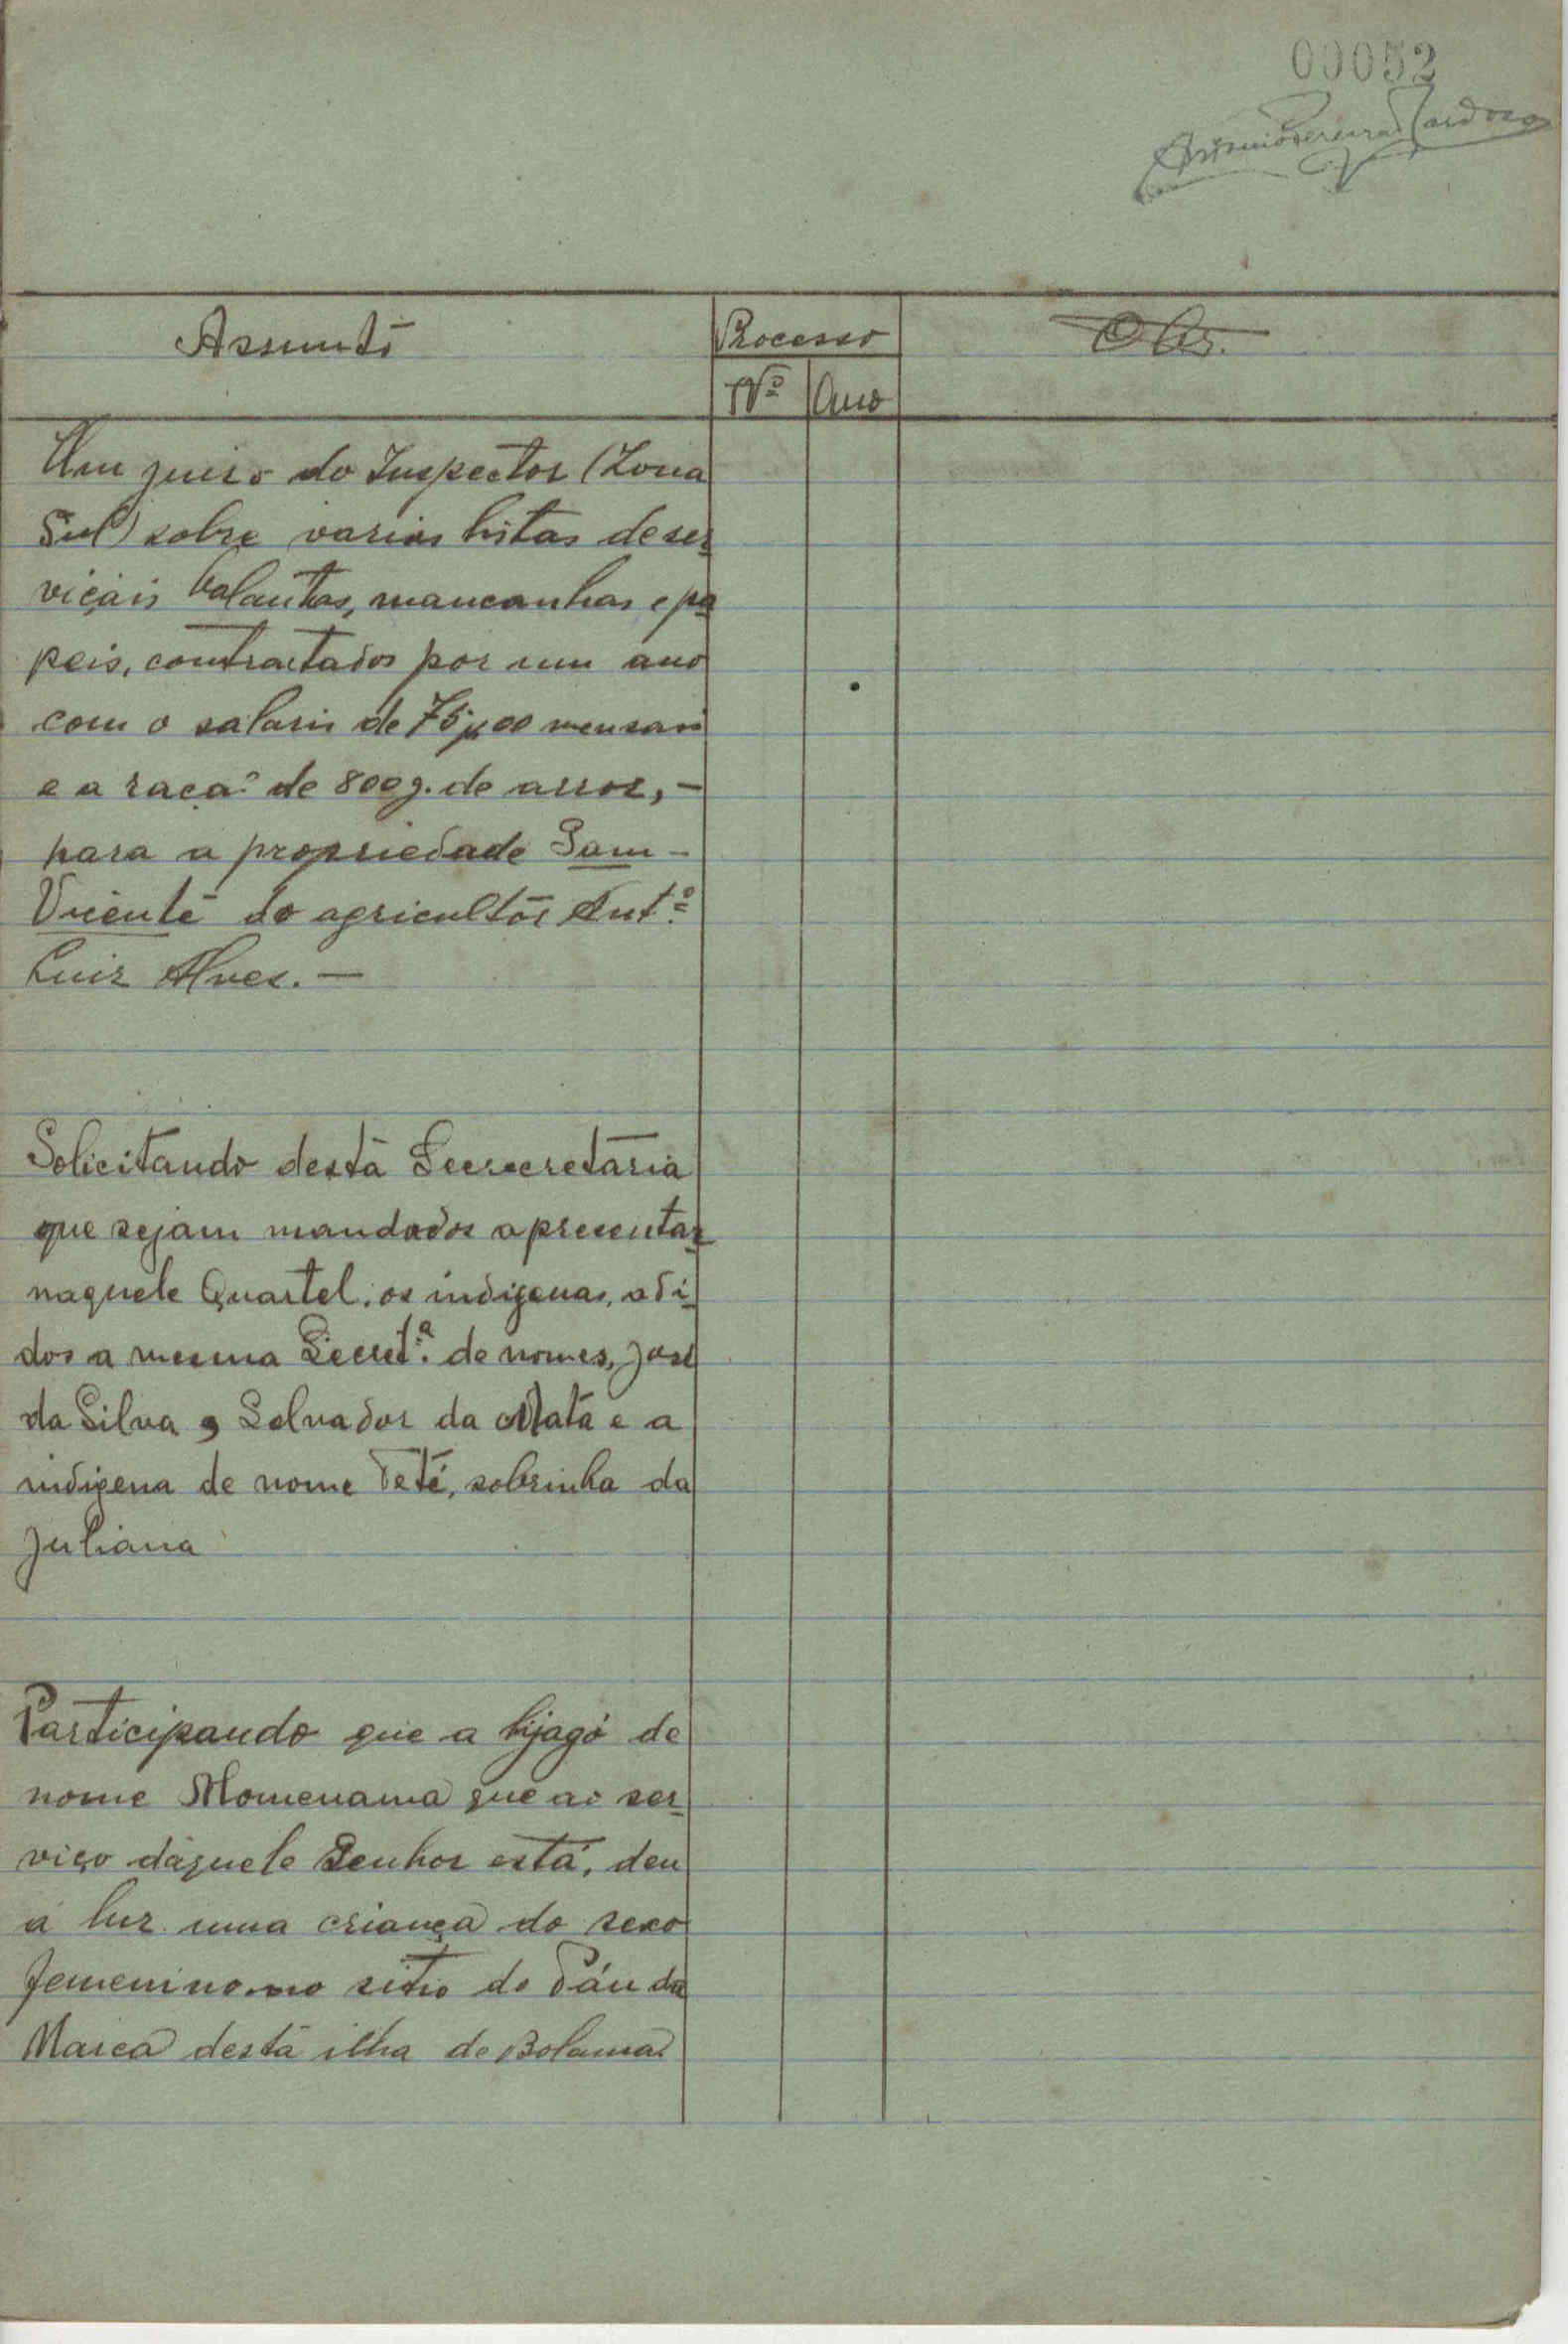 00052
Pereira Cardoso
Assunto
Processo
Obs.
Nº
Ano
Um juiso do Inspector (Zona
Sul) sobre varias listas de ser-
viçais balantas, mancanhas e pa-
peis, contractados por um ano
com o salario de 75$00 mensais
e a raçaº de 800g. de arroz, -
para a propriedade Sam-
Vicente do agricultor Antº
Luiz Alves. -
Solicitando desta Secrecretaria
que sejam mandados apresentar
naquele Quartel, os indigenas, adi-
dos a mesma Secretª. de nomes, José
da Silva, Salvador da Mata e a
indigena de nome Teté, sobrinha da
Juliana
Participando que a bijagó de
nome Momenama que ao ser-
viço daquele Senhor está, deu
á luz uma criança do sexo
femenino no sitio do Páu da
Marca desta ilha de Bolama